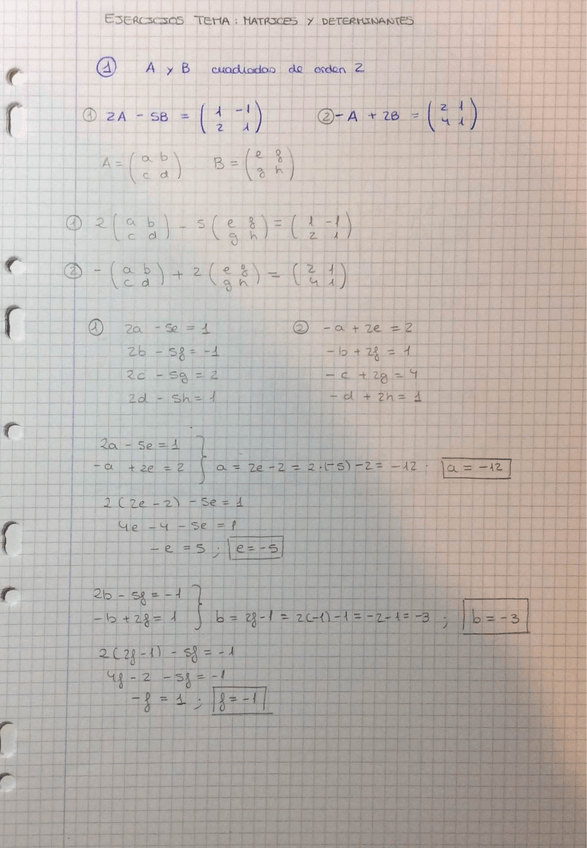 EJERCICIOS TEMA: MATRICES Y DETERMINANTES
① A y B cuadradas de orden 2
① 2A - 5B = ( 1 -1 ; 2 1 ) ② -A + 2B = ( 2 1 ; 4 1 )
A = ( a b ; c d ) B = ( e f ; g h )
① 2 ( a b ; c d ) - 5 ( e f ; g h ) = ( 1 -1 ; 2 1 )
② - ( a b ; c d ) + 2 ( e f ; g h ) = ( 2 1 ; 4 1 )
① 2a - 5e = 1 ② -a + 2e = 2
2b - 5f = -1 -b + 2f = 1
2c - 5g = 2 -c + 2g = 4
2d - 5h = 1 -d + 2h = 1
2a - 5e = 1
-a + 2e = 2 } a = 2e - 2 = 2·(-5) - 2 = -12 a = -12
2(2e - 2) - 5e = 1
4e - 4 - 5e = 1
-e = 5 ; e = -5
2b - 5f = -1
-b + 2f = 1 } b = 2f - 1 = 2(-1) - 1 = -2 - 1 = -3 ; b = -3
2(2f - 1) - 5f = -1
4f - 2 - 5f = -1
-f = 1 ; f = -1